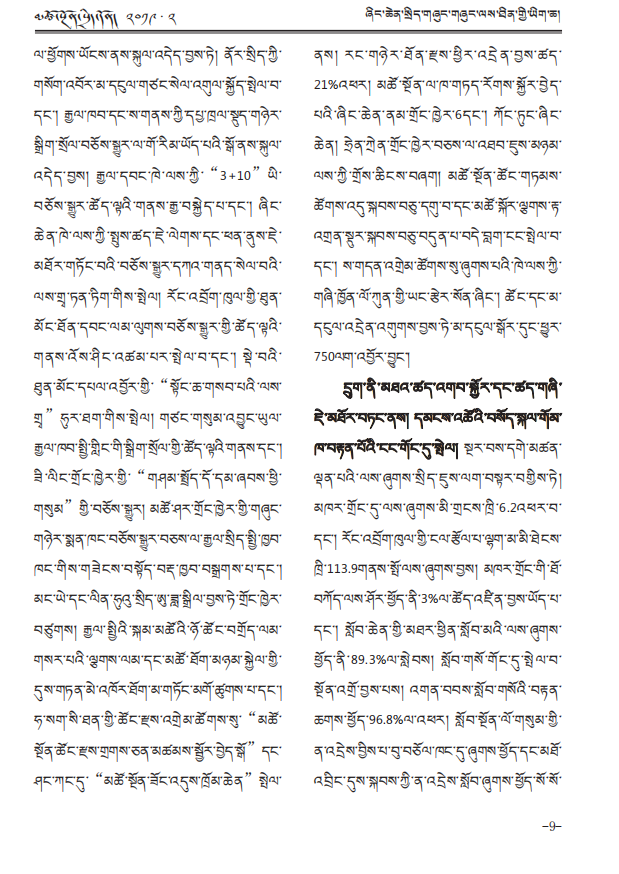 ༢༠༡༩ · ༢
ཞིང་ཆེན་སྲིད་གཞུང་གཞུང་ལས་ཐིན་གྱི་ཡིག་ཆ།
ལ་ཕྱོགས་ཡོངས་ནས་སྐུལ་འདེད་བྱས་ཏེ། ནོར་སྲིད་ཀྱི་
གསོག་འཇོར་མ་དངུལ་གཙང་སེལ་འགུལ་སྐྱོད་སྤེལ་བ་
དང་། རྒྱལ་ཁབ་དང་ས་གནས་ཀྱི་དཔྱ་ཁྲལ་སྡུད་གཉེར་
སྒྲིག་སྲོལ་བཅོས་སྒྱུར་ལ་གོ་རིམ་ཡོད་པའི་སྒོ་ནས་སྐུལ་
འདེད་བྱས། རྒྱལ་དབང་ཁེ་ལས་ཀྱི་“3+10” ཡི་
བཅོས་སྒྱུར་ཚོད་ལྟའི་གནས་རྒྱ་བསྐྱེད་པ་དང་། ཞིང་
ཆེན་ཁེ་ལས་ཀྱི་སྤུས་ཚད་ཇེ་ལེགས་དང་ཕན་ནུས་ཇེ་
མཐོར་གཏོང་བའི་བཅོས་སྒྱུར་དཀའ་གནད་སེལ་བའི་
ལས་གྲྭ་ཏན་ཏིག་གིས་སྤེལ། རོང་འབྲོག་ཁུལ་གྱི་ཐུན་
མོང་ཐོན་དབང་ལམ་ལུགས་བཅོས་སྒྱུར་གྱི་ཚོད་ལྟའི་
གནས་འོས་ཤིང་འཚམ་པར་སྤེལ་བ་དང་། སྡེ་བའི་
ཐུན་མོང་དཔལ་འབྱོར་གྱི་“སྟོང་ཆ་གསབ་པའི་ལས་
གྲྭ” ཧུར་ཐག་གིས་སྤེལ། གཙང་གསུམ་འབྱུང་ཡུལ་
རྒྱལ་ཁབ་སྤྱི་གླིང་གི་སྒྲིག་སྲོལ་གྱི་ཚོད་ལྟའི་གནས་དང་།
ཟི་ལིང་གྲོང་ཁྱེར་གྱི་“གཤམ་སྤྲོད་དོ་དམ་ཞབས་ཕྱི་
གསུམ” གྱི་བཅོས་སྒྱུར། མཚོ་ཤར་གྲོང་ཁྱེར་གྱི་གཞུང་
གཉེར་སྨན་ཁང་བཅོས་སྒྱུར་བཅས་ལ་རྒྱལ་སྲིད་སྤྱི་ཁྱབ་
ཁང་གིས་གཟེངས་བསྟོད་བརྡ་ཁྱབ་བསྒྲགས་པ་དང་།
མང་ཡེ་དང་ལིན་ཧྭུའུ་སྲིད་ཨུ་ཟླ་སྒྲིལ་བྱས་ཏེ་གྲོང་ཁྱེར་
བཙུགས། རྒྱལ་སྤྱིའི་སྐམ་མཚོའི་ཉོ་ཚོང་བགྲོད་ལམ་
གསར་པའི་ལྕགས་ལམ་དང་མཚོ་ཐོག་མཉམ་སྐྱེལ་གྱི་
དུས་གཏན་མེ་འཁོར་ཐོག་མ་གཏོང་མགོ་ཚུགས་པ་དང་།
ཧ་སག་སི་ཐན་གྱི་ཚོང་རྫས་འགྲེམ་ཚོགས་སུ་“མཚོ་
སྔོན་ཚོང་རྫས་གྲགས་ཅན་མཚམས་སྦྱོར་བྱེད་སྒོ” དང་
ཤང་ཀང་དུ་“མཚོ་སྔོན་ཟོང་འདུས་ཁྲོམ་ཆེན” སྤེལ་
ནས། རང་གཉེར་ཐོན་རྫས་ཕྱིར་འདྲེན་བྱས་ཚད་
21%འཕར། མཚོ་སྔོན་ལ་ཁ་གཏད་རོགས་སྐྱོར་བྱེད་
པའི་ཞིང་ཆེན་ནམ་གྲོང་ཁྱེར་6དང་། ཀོང་ཏུང་ཞིང་
ཆེན། ཧྲེན་ཀྲེན་གྲོང་ཁྱེར་བཅས་ལ་འཐབ་ཇུས་མཉམ་
ལས་ཀྱི་གྲོས་ཆིངས་བཞག། མཚོ་སྔོན་ཚོང་གཏམས་
ཚོགས་འདུ་སྐབས་བཅུ་དགུ་བ་དང་མཚོ་སྐོར་ལྕགས་རྟ་
འགྲན་སྡུར་སྐབས་བཅུ་བདུན་པ་བདེ་བླག་ངང་སྤེལ་བ་
དང་། ས་གདན་འགྲེམ་ཚོགས་སུ་ཞུགས་པའི་ཁེ་ལས་ཀྱི་
གཞི་ཁྱོན་ལོ་ཀུན་གྱི་ཡང་རྩེར་སོན་ཞིང་། ཚོང་དང་མ་
དངུལ་འདྲེན་འགུགས་བྱས་ཏེ་མ་དངུལ་སྒོར་དུང་ཕྱུར་
750ལག་འབྱོར་བྱུང་།
དྲུག་ནི་མཐའ་ཚད་འགབ་སྐྱོར་དང་ཚད་གཞི་
ཇེ་མཐོར་བཏང་ནས། དམངས་འཚོའི་བསོད་སྐལ་གོམ་
ཁ་བརྟན་པོའི་ངང་གོང་དུ་སྤེལ། སྔར་བས་དགེ་མཚན་
ལྡན་པའི་ལས་ཞུགས་སྲིད་ཇུས་ལག་བསྟར་བགྱིས་ཏེ།
མཁར་གྲོང་དུ་ལས་ཞུགས་མི་གྲངས་ཁྲི་6.2འཕར་བ་
དང་། རོང་འབྲོག་ཁུལ་གྱི་ངལ་རྩོལ་པ་ལྷག་མ་མི་ཐེངས་
ཁྲི་113.9གནས་སྤོ་ལས་ཞུགས་བྱས། མཁར་གྲོང་གི་ཐོ་
བཀོད་ལས་ཤོར་ཕྱོད་ནི་3%ལ་ཚོད་འཛིན་བྱས་ཡོད་པ་
དང་། སློབ་ཆེན་གྱི་མཐར་ཕྱིན་སློབ་མའི་ལས་ཞུགས་
ཕྱོད་ནི་89.3%ལ་སླེབས། སློབ་གསོ་གོང་དུ་སྤེལ་བ་
སྔོན་འགྲོ་བྱས་པས། འགན་བབས་སློབ་གསོའི་བརྟན་
ཆགས་ཕྱོད་96.8%ལ་འཕར། སློབ་སྔོན་ལོ་གསུམ་གྱི་
ན་འདྲེས་བྱིས་པ་བུ་བཅོལ་ཁང་དུ་ཞུགས་ཕྱོད་དང་མཐོ་
འབྲིང་དུས་སྐབས་ཀྱི་ན་འདྲེས་སློབ་ཞུགས་ཕྱོད་སོ་སོ་
-9-